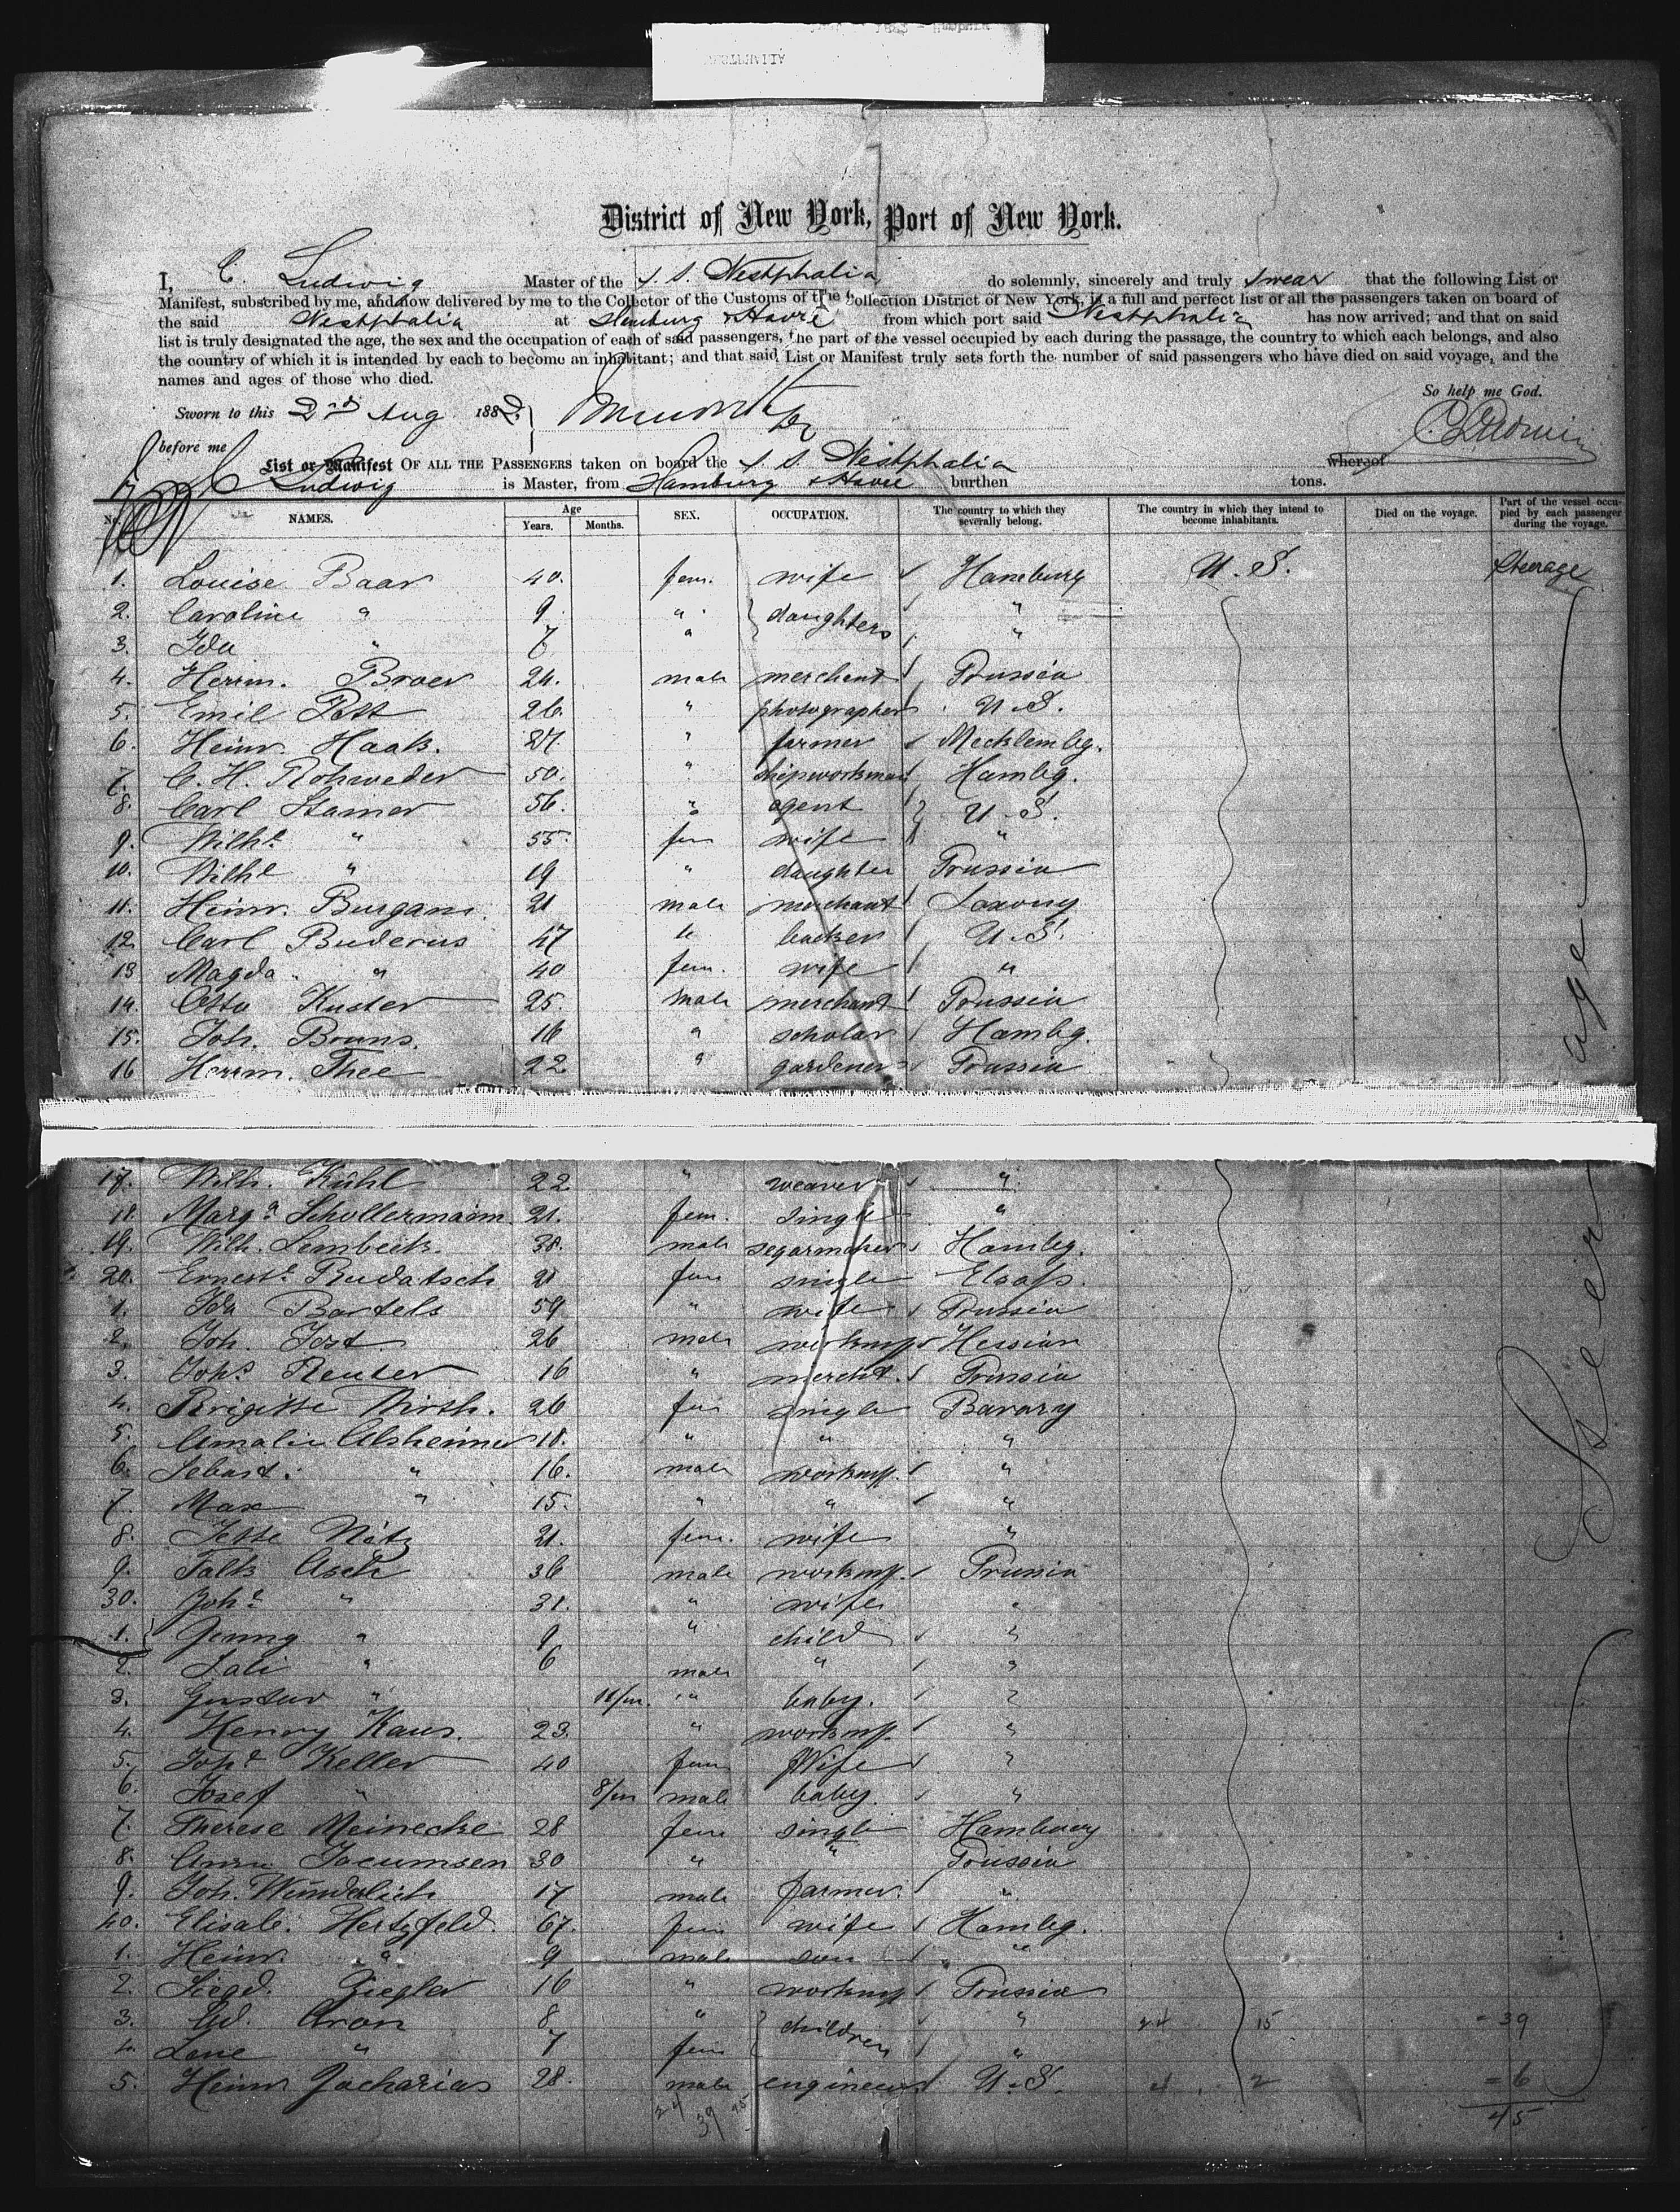 District of New York, Port of New York.
I, C. Ludwig Master of the S. S. Westphalia do solemnly, sincerely and truly swear that the following List or
Manifest, subscribed by me, and now delivered by me to the Collector of the Customs of the Collection District of New York, is a full and perfect list of all the passengers taken on board of
the said Westphalia at Hamburg & Havre from which port said Westphalia has now arrived; and that on said
list is truly designated the age, the sex and the occupation of each of said passengers, the part of the vessel occupied by each during the passage, the country to which each belongs, and also
the country of which it is intended by each to become an inhabitant; and that said List or Manifest truly sets forth the number of said passengers who have died on said voyage, and the
names and ages of those who died.
So help me God.
Sworn to this 2nd Aug 1882
C Ludwig
before me
List or Manifest OF ALL THE PASSENGERS taken on board the S. S. Westphalia whereof
C Ludwig is Master, from Hamburg & Havre burthen tons.
No. NAMES. Age Years. Months. SEX. OCCUPATION. The country to which they severally belong. The country in which they intend to become inhabitants. Died on the voyage. Part of the vessel occupied by each passenger during the voyage.
1. Louise Baar 40. fem. wife Hamburg U. S. Steerage
2. Caroline " 9. " daughters "
3. Ida " 7 " "
4. Herrm. Broer 24. male merchant Prussia
5. Emil Pott 26. " photographer U. S.
6. Heinr. Haak. 27. " farmer Mecklembg.
7. C. H. Rohweder 50. " shipworkman Hambg.
8. Carl Stamer 56. " agent U. S.
9. Wilhe " 55. fem wife "
10. Wilhe " 19 " daughter Prussia
11. Heinr. Burgam. 21 male merchant Saxony
12. Carl Buderus 47 " backer U. S.
13 Magda. " 40 fem. wife "
14. Otto Kuster 25. male merchant Prussia
15. Joh. Bruns. 16 " scholar Hambg.
16 Herrm. Thee 22 " gardener Prussia
17. Wilh. Kühl 22 " weaver "
18. Marga Schollermann. 21. fem. single "
19. Wilh. Lembeck. 38. male segarmaker Hambg.
20. Erneste Rudatsch 21 fem single Elsass.
1. Ida Bartels 59 " wife Prussia
2. Joh. Jost 26 male workmn Hessian
3. Johs Reuter 16 " mercht. Prussia
4. Brigitte Wirth. 26 fem single Bavary
5. Amalie Alsheimer 18. " " "
6. Sebast. " 16. male workmn. "
7. Max " 15. " " "
8. Jette Nätz 21. fem. wife "
9. Falk Asch 36 male workmn. Prussia
30. Johe " 31. " wife "
1. Jenny " 9 " child "
2. Sali " 6 male " "
3. Gustav " 11/m. " baby. "
4. Henry Kaus. 23. " workmn. "
5. Johe Keller 40 fem Wife "
6. Josef " 8/m male baby. "
7. Therese Meinecke 28 fem single Hamburg
8. Anna Jacumsen 30 " " Prussia
9. Joh. Wunderlich 17 male farmer. "
40. Elisab. Hertzfeld. 67. fem wife Hambg.
1. Heinr. " 9 male son "
2. Siegd. Ziegler 16 " workmn Prussia
3. Ad. Aron 8 " children " 24 15 = 39
4. Lene " 7 fem "
5. Heinr Zacharias 28. male engineer U. S. 4 2 = 6
24 39 45
Steerage